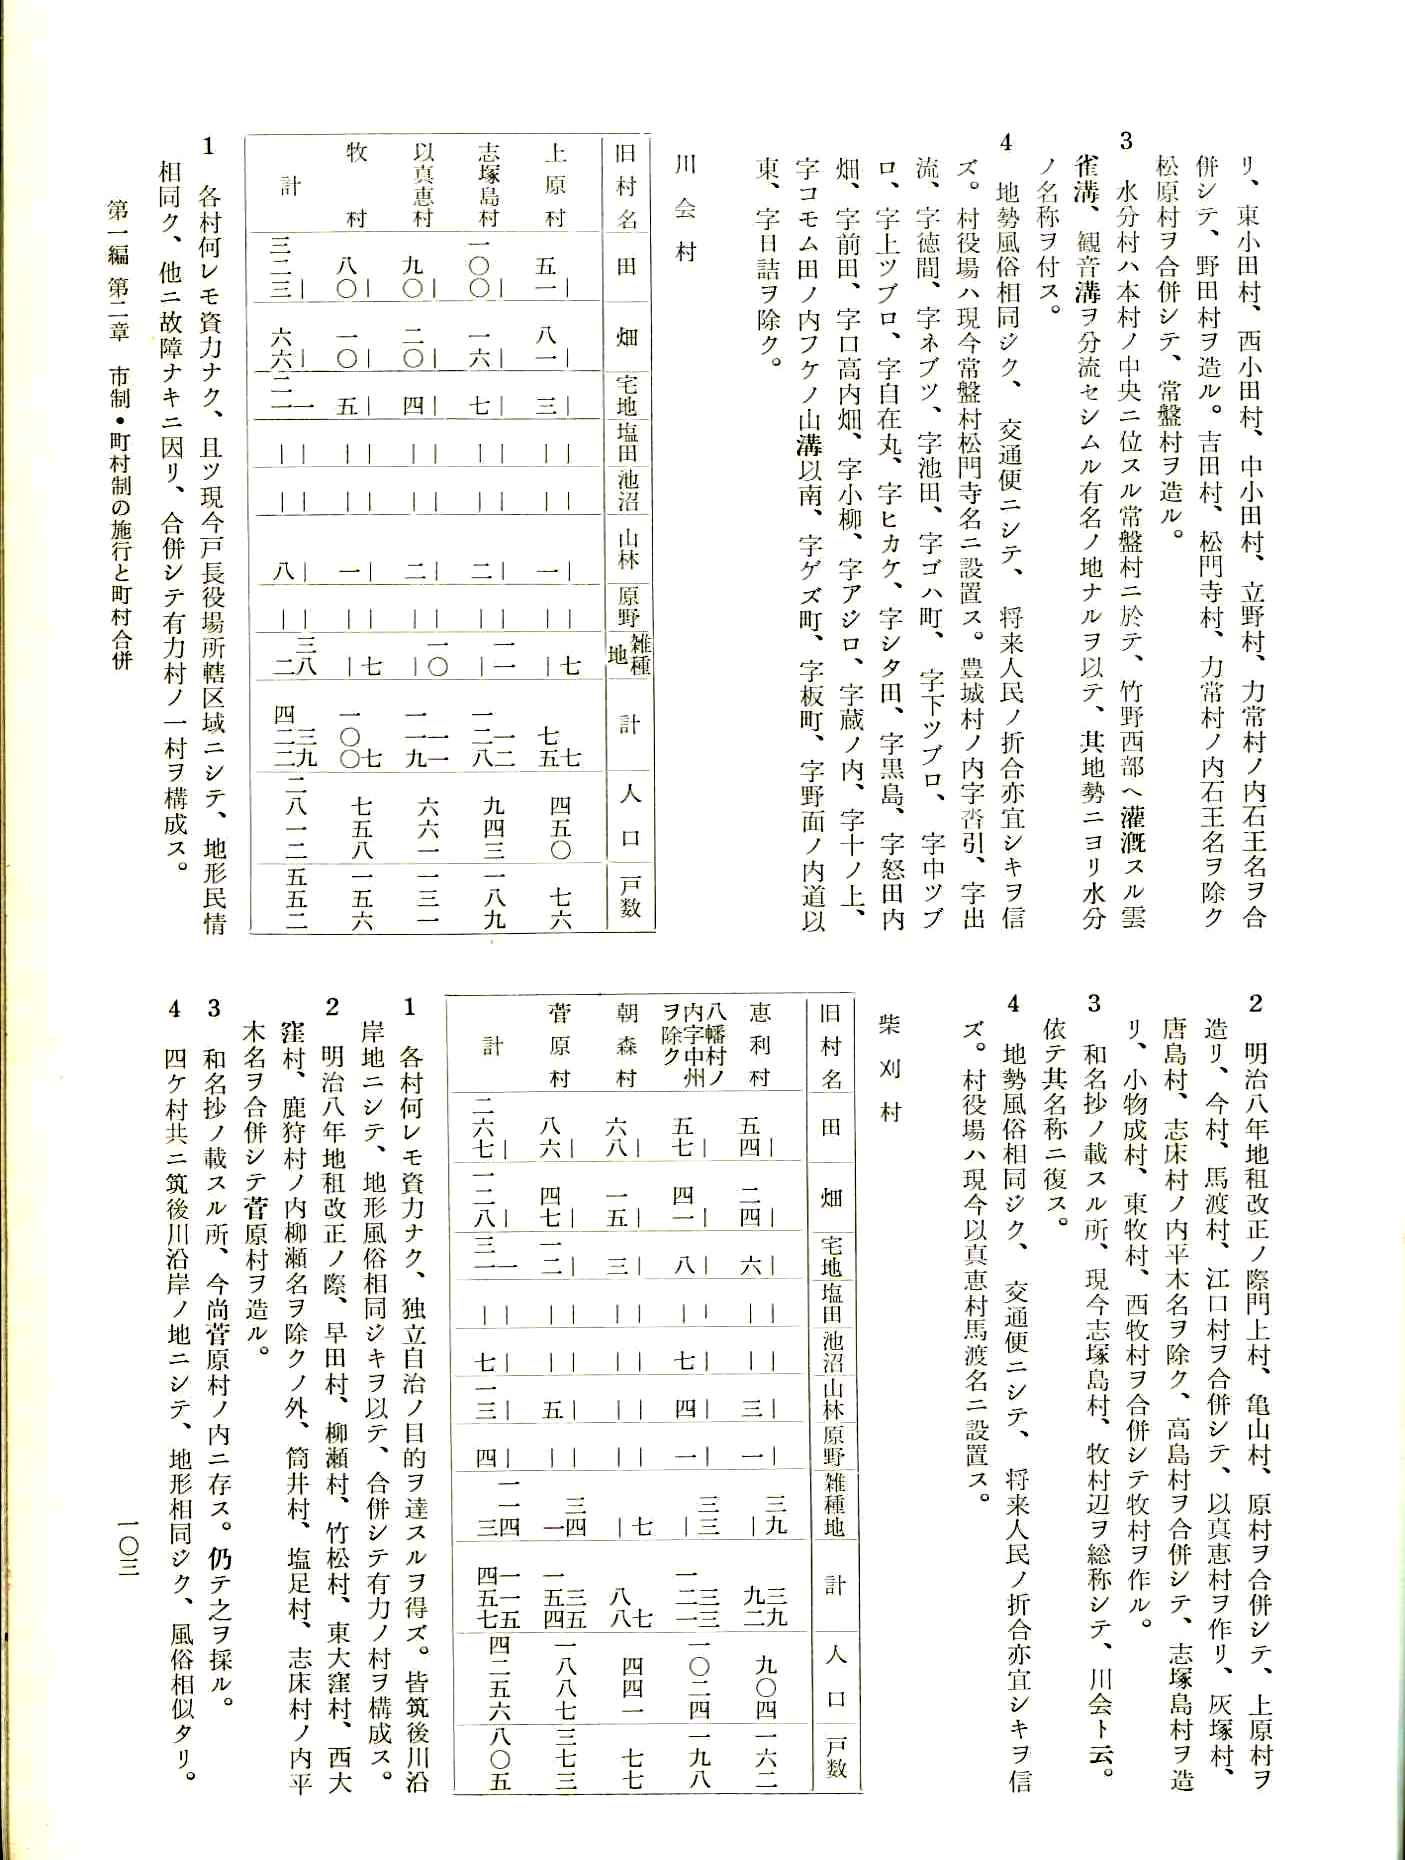 リ、東小田村、西小田村、中小田村、立野村、力常村ノ内石王名ヲ合
併シテ、野田村ヲ造ル。吉田村、松門寺村、力常村ノ内石王名ヲ除ク
松原村ヲ合併シテ、常盤村ヲ造ル。
3 水分村ハ本村ノ中央ニ位スル常盤村ニ於テ、竹野西部ヘ灌漑スル雲
雀溝、観音溝ヲ分流セシムル有名ノ地ナルヲ以テ、其地勢ニヨリ水分
ノ名称ヲ付ス。
4 地勢風俗相同ジク、交通便ニシテ、将来人民ノ折合亦宜シキヲ信
ズ。村役場ハ現今常盤村松門寺名ニ設置ス。豊城村ノ内字沓引、字出
流、字徳間、字ネブツ、字池田、字ゴハ町、字下ツブロ、字中ツブ
ロ、字上ツブロ、字自在丸、字ヒカケ、字シタ田、字黒島、字怒田内
畑、字前田、字口高内畑、字小柳、字アジロ、字蔵ノ内、字十ノ上、
字コモム田ノ内フケノ山溝以南、字ゲズ町、字板町、字野面ノ内道以
東、字日詰ヲ除ク。
川会村
旧村名 田 畑 宅地 塩田 池沼 山林 原野 雑種地 計 人口 戸数
上原村 五一| 八一| 三| || || 一| || |七 七五七 四五〇 七六
志塚島村 一〇〇| 一六| 七| || || 二| || 一|一 一二八一二 九四三 一八九
以真恵村 九〇| 二〇| 四| || || 二| || 一|〇 一一九一一 六六一 一三一
牧村 八〇| 一〇| 五| || || 一| || |七 一〇〇七 七五八 一五六
計 三二三| 六六| 二一一 || || 八| || 三二八 四二二三九 二八一二 五五二
1 各村何レモ資力ナク、且ツ現今戸長役場所轄区域ニシテ、地形民情
相同ク、他ニ故障ナキニ因リ、合併シテ有力村ノ一村ヲ構成ス。
2 明治八年地租改正ノ際門上村、亀山村、原村ヲ合併シテ、上原村ヲ
造リ、今村、馬渡村、江口村ヲ合併シテ、以真恵村ヲ作リ、灰塚村、
唐島村、志床村ノ内平木名ヲ除ク、高島村ヲ合併シテ、志塚島村ヲ造
リ、小物成村、東牧村、西牧村ヲ合併シテ牧村ヲ作ル。
3 和名抄ノ載スル所、現今志塚島村、牧村辺ヲ総称シテ、川会ト云。
依テ其名称ニ復ス。
4 地勢風俗相同ジク、交通便ニシテ、将来人民ノ折合亦宜シキヲ信
ズ。村役場ハ現今以真恵村馬渡名ニ設置ス。
柴刈村
旧村名 田 畑 宅地 塩田 池沼 山林 原野 雑種地 計 人口 戸数
恵利村 五四| 二四| 六| || || 三| 一| 三|九 九二三九 九〇四 一六二
八幡村ノ内字中州ヲ除ク 五七| 四一| 八| || 七| 四| 一| 三|三 一二一三三 一〇二四 一九八
朝森村 六八| 一五| 三| || || || || |七 八八七 四四一 七七
菅原村 八六| 四七| 一二| || || 五| || 三一四 一五四三五 一八八七 三七三
計 二六七| 一二八| 三一一 || 七| 一三| 四| 一一三四 四五七一五 四二五六 八〇五
1 各村何レモ資力ナク、独立自治ノ目的ヲ達スルヲ得ズ。皆筑後川沿
岸地ニシテ、地形風俗相同ジキヲ以テ、合併シテ有力ノ村ヲ構成ス。
2 明治八年地租改正ノ際、早田村、柳瀬村、竹松村、東大窪村、西大
窪村、鹿狩村ノ内柳瀬名ヲ除クノ外、筒井村、塩足村、志床村ノ内平
木名ヲ合併シテ菅原村ヲ造ル。
3 和名抄ノ載スル所、今尚菅原村ノ内ニ存ス。仍テ之ヲ採ル。
4 四ケ村共ニ筑後川沿岸ノ地ニシテ、地形相同ジク、風俗相似タリ。
第一編 第二章 市制・町村制の施行と町村合併
一〇三